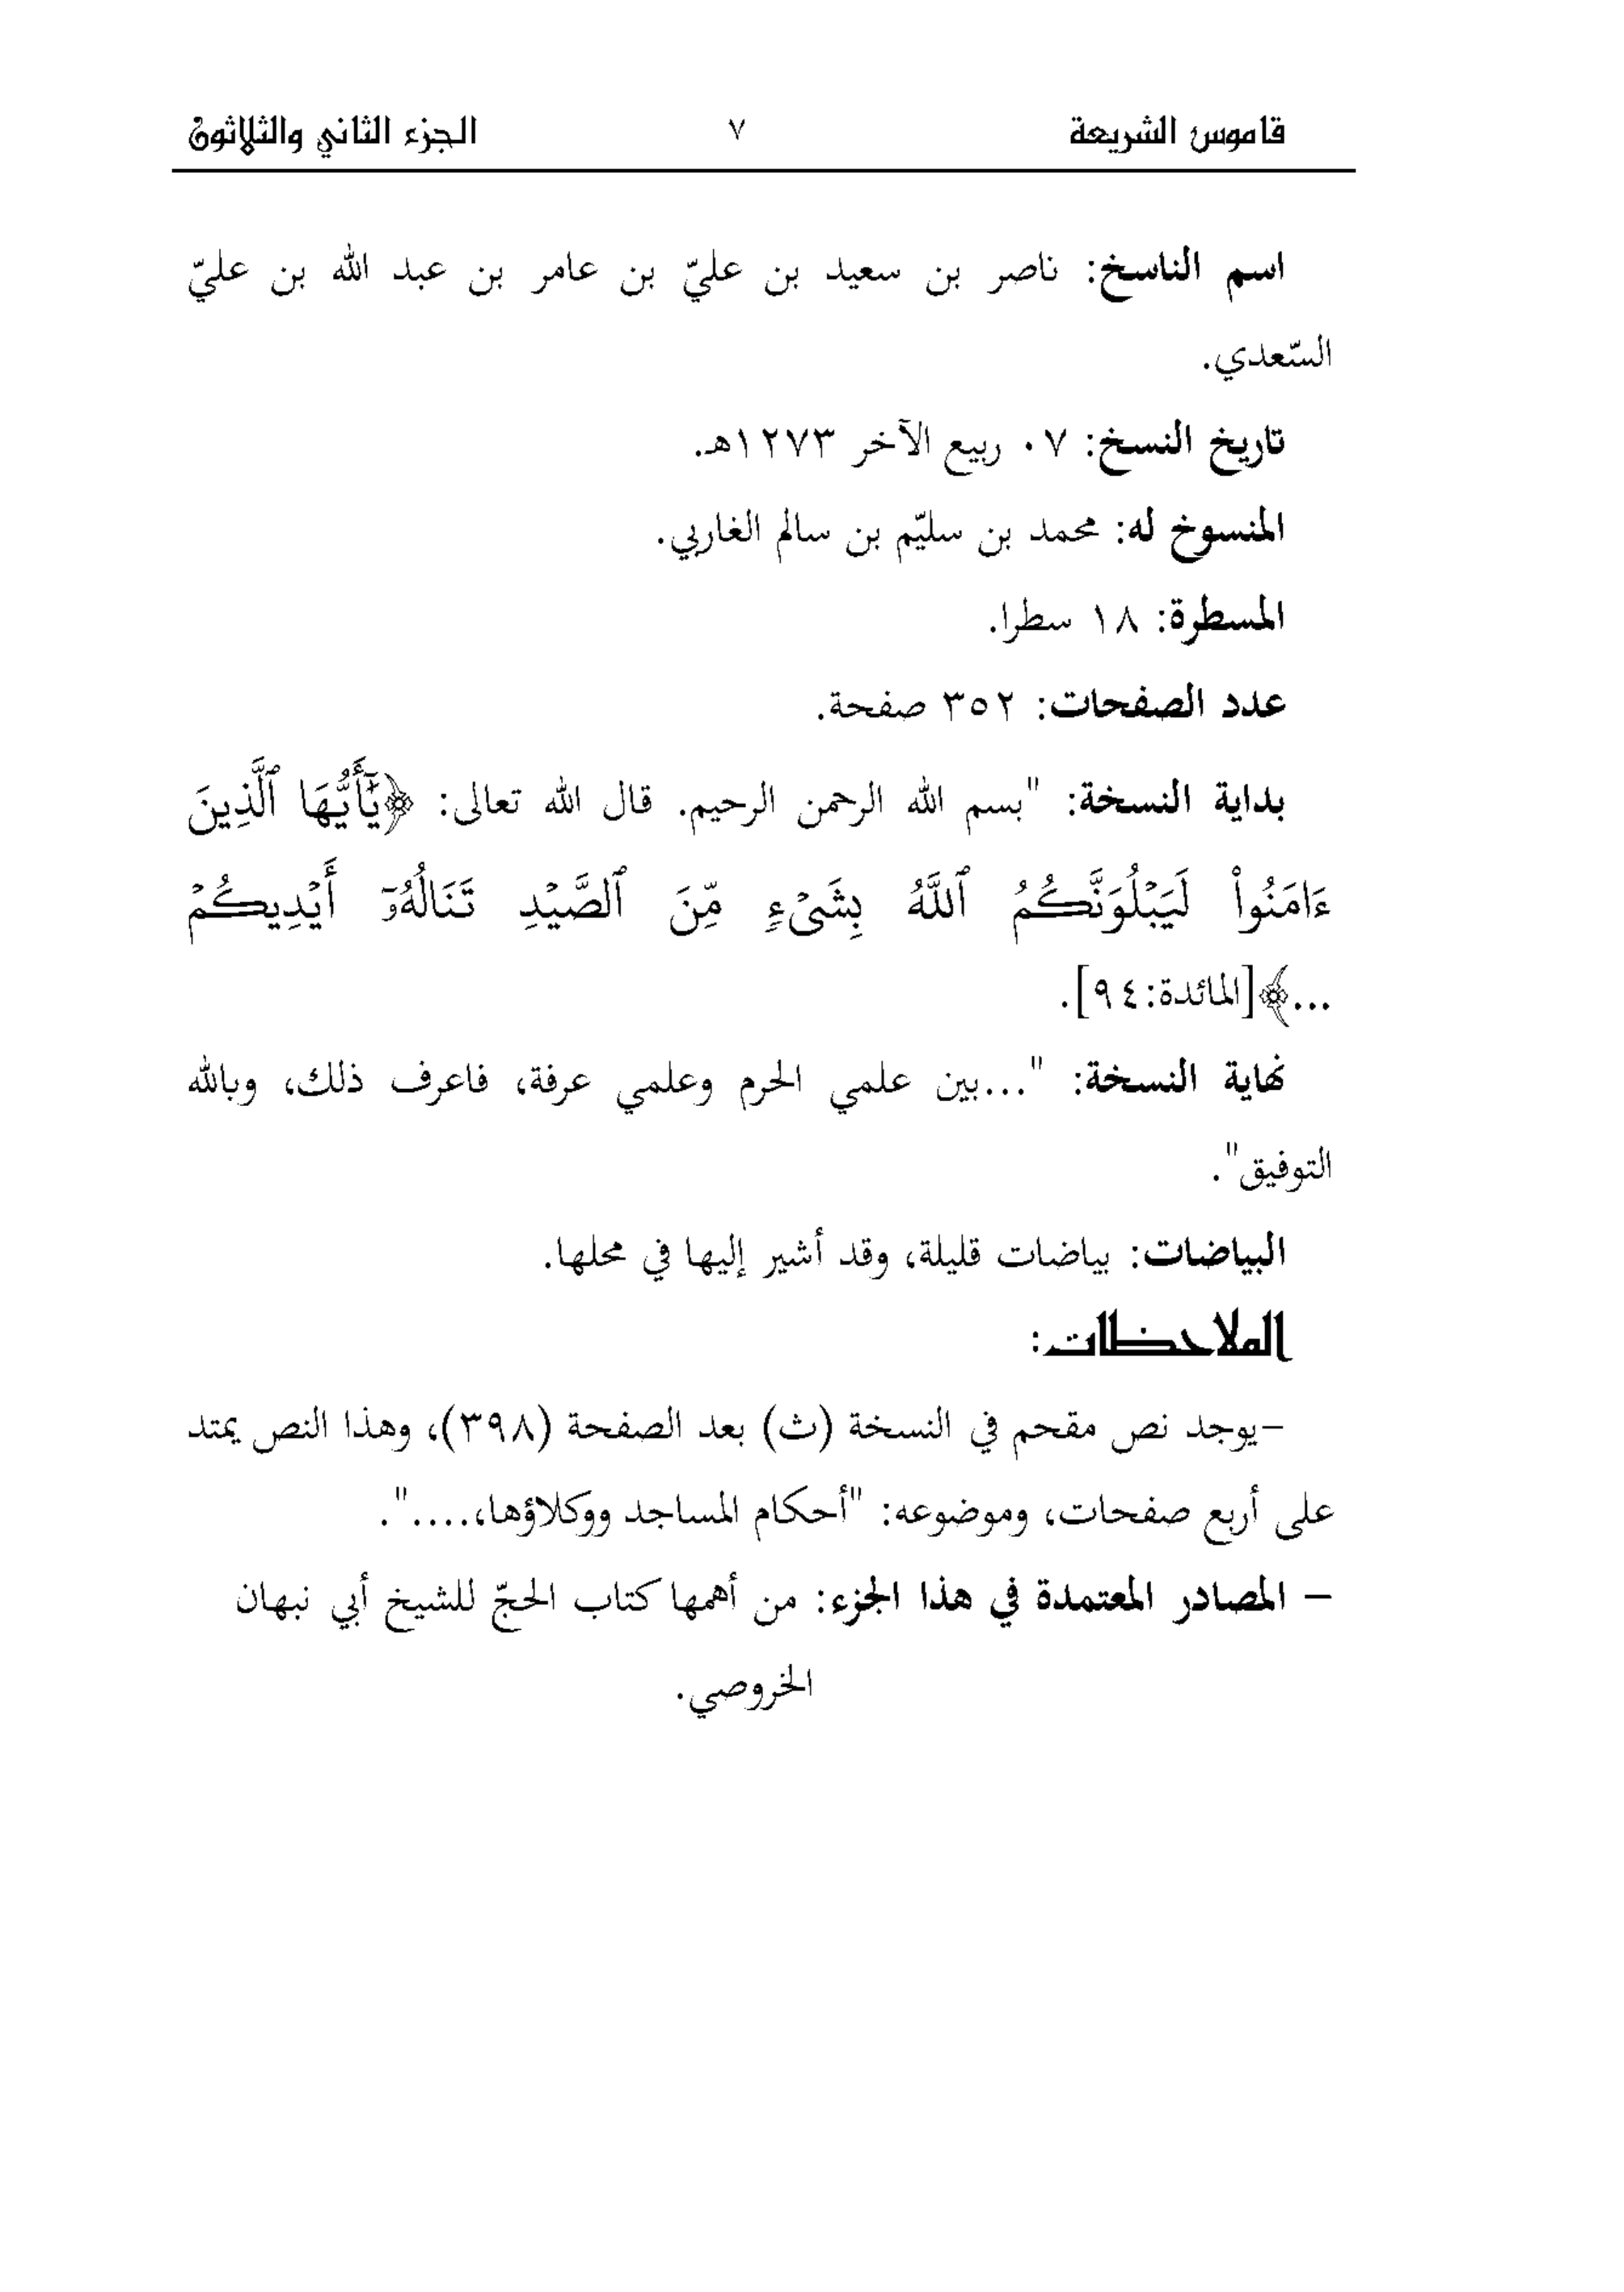 قاموس الشريعة ٧ الجزء الثاني والثلاثون
اسم الناسخ: ناصر بن سعيد بن عليّ بن عامر بن عبد الله بن عليّ
السّعدي.
تاريخ النسخ: ٠٧ ربيع الآخر ١٢٧٣هـ.
المنسوخ له: محمد بن سليّم بن سالم الغاربي.
المسطرة: ١٨ سطرا.
عدد الصفحات: ٣٥٢ صفحة.
بداية النسخة: "بسم الله الرحمن الرحيم. قال الله تعالى: ﴿يَٰٓأَيُّهَا ٱلَّذِينَ
ءَامَنُواْ لَيَبۡلُوَنَّكُمُ ٱللَّهُ بِشَيۡءٖ مِّنَ ٱلصَّيۡدِ تَنَالُهُۥٓ أَيۡدِيكُمۡ
...﴾[المائدة:٩٤].
نهاية النسخة: "...بين علمي الحرم وعلمي عرفة، فاعرف ذلك، وبالله
التوفيق".
البياضات: بياضات قليلة، وقد أشير إليها في محلها.
الملاحظات:
-يوجد نص مقحم في النسخة (ث) بعد الصفحة (٣٩٨)، وهذا النص يمتد
على أربع صفحات، وموضوعه: "أحكام المساجد ووكلاؤها،....".
- المصادر المعتمدة في هذا الجزء: من أهمها كتاب الحجّ للشيخ أبي نبهان
الخروصي.